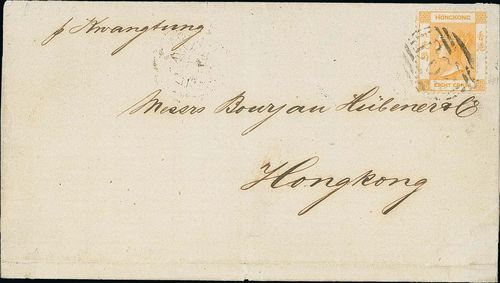 p Kwangtung
HONGKONG
EIGHT CENTS
Messrs Bourjau Hübener & Co
Hongkong